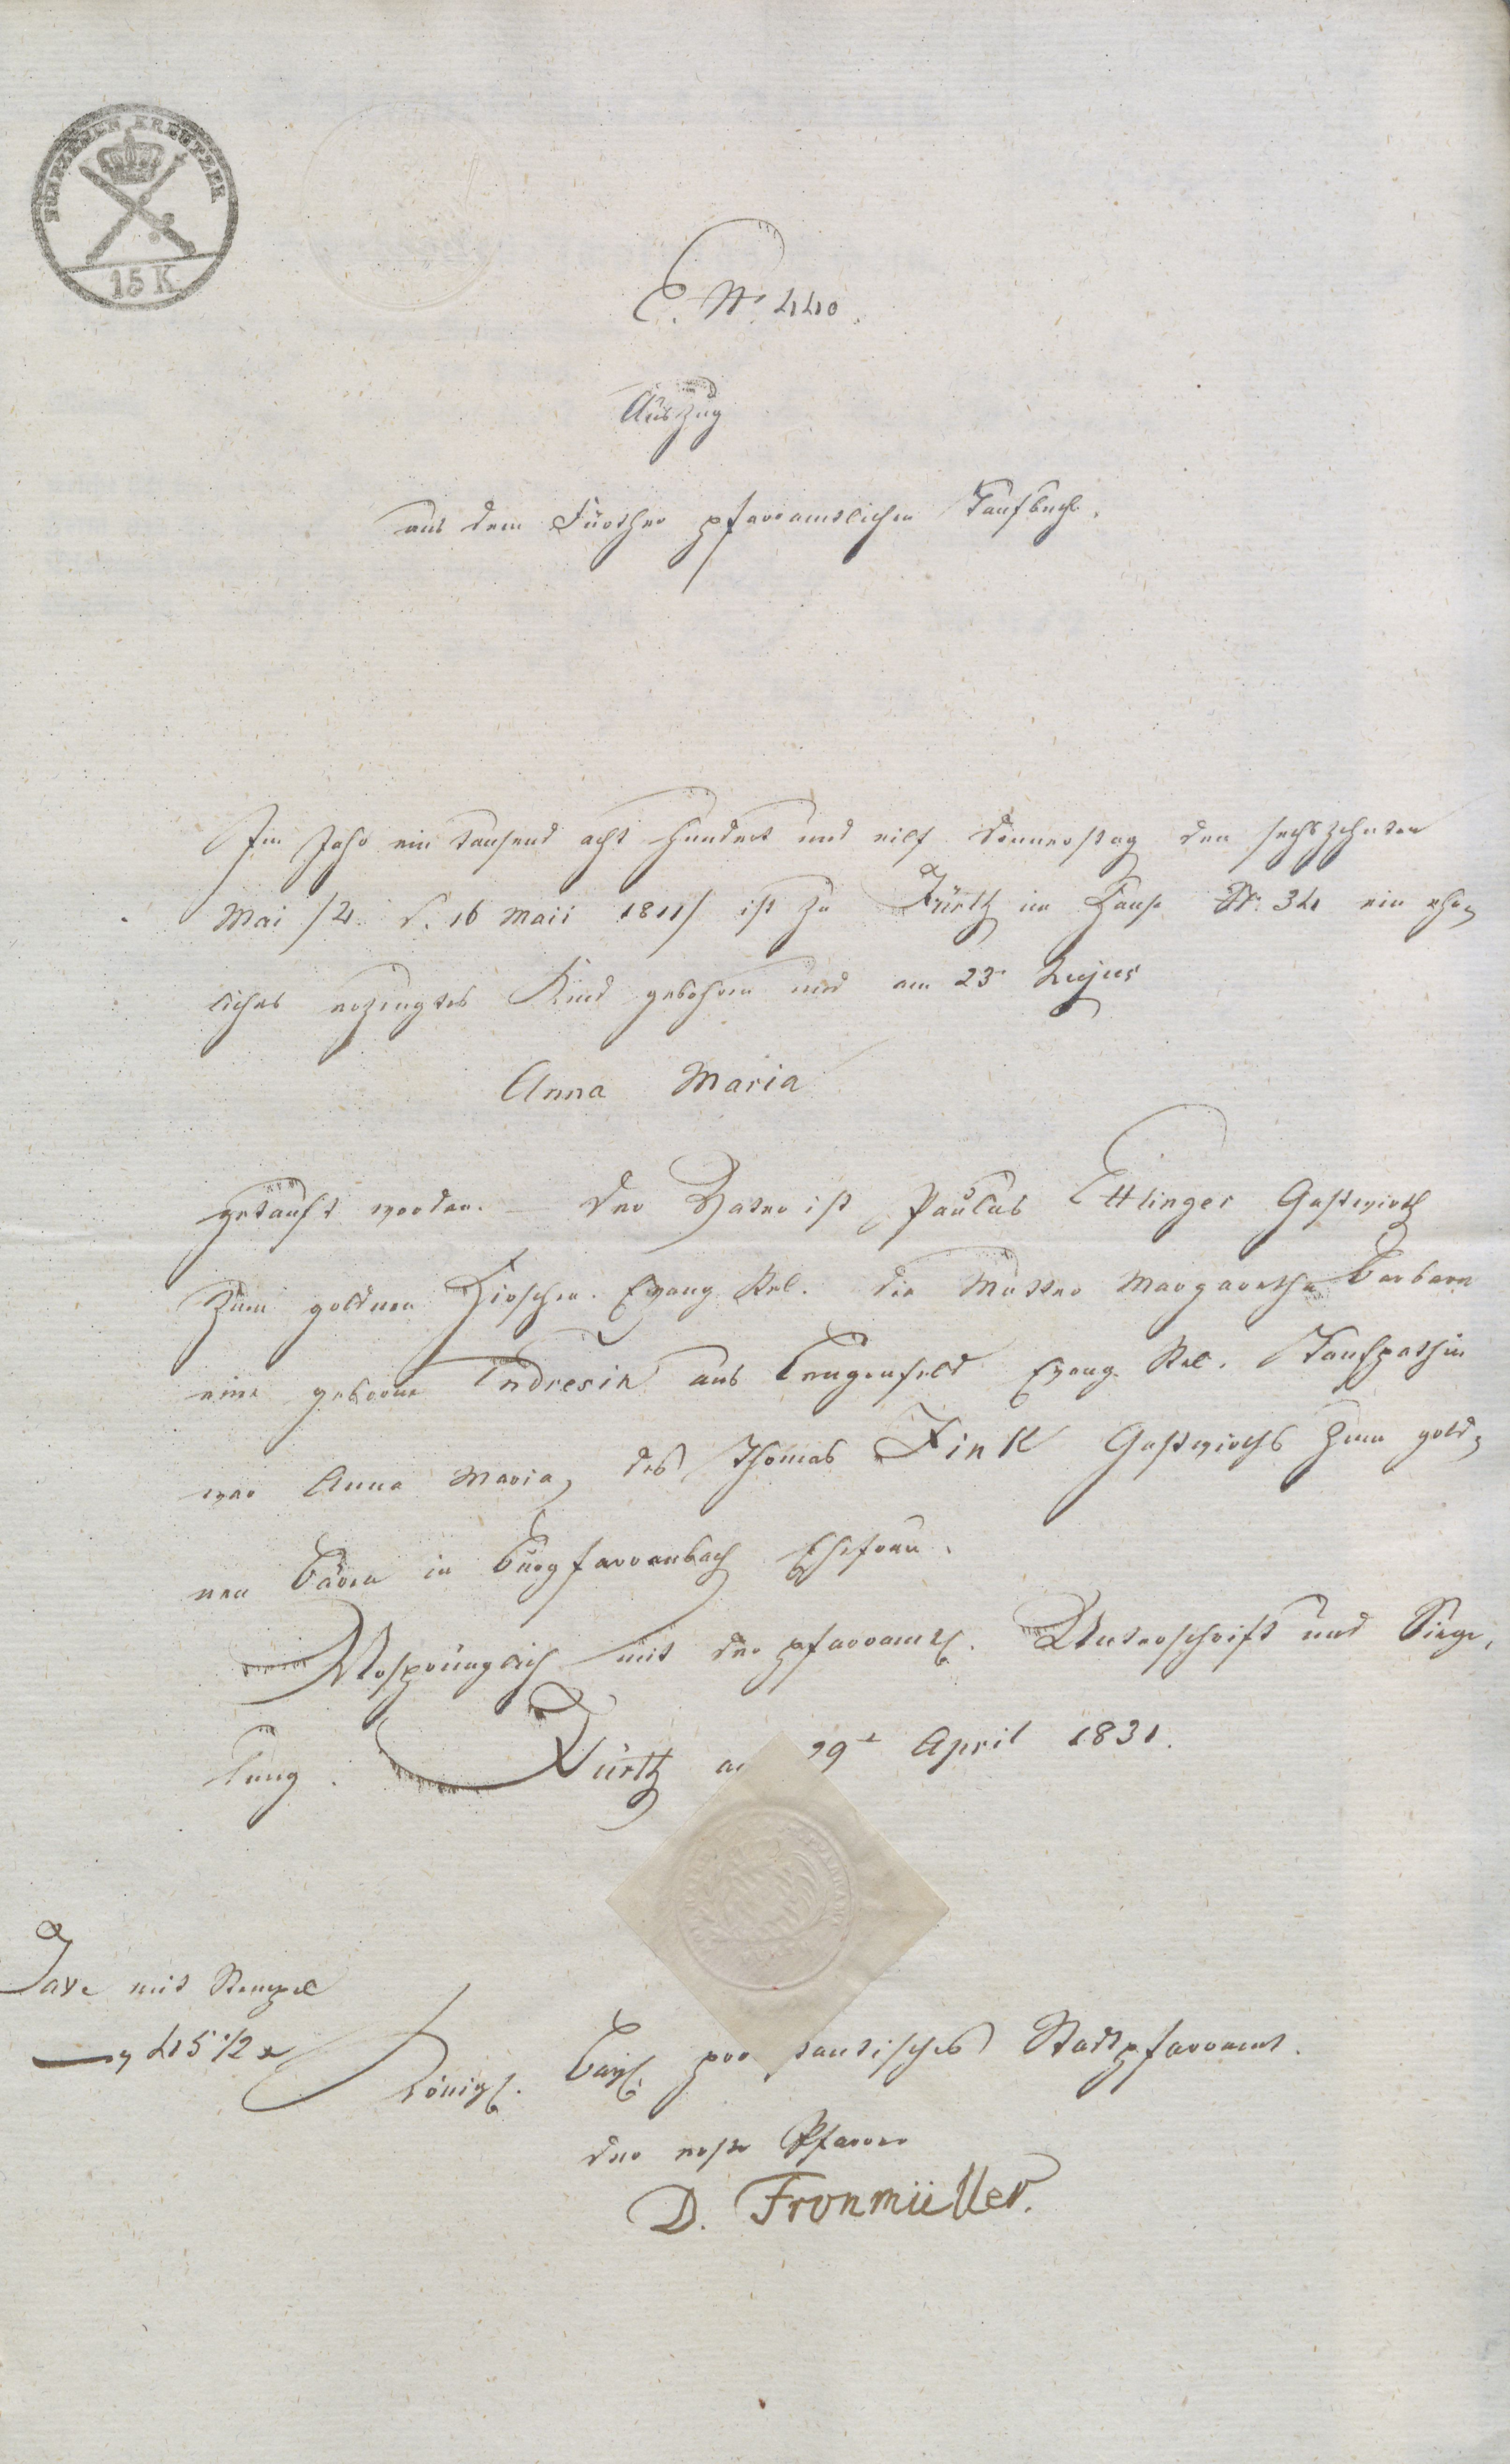 FÜNFZEHEN KREUTZER
15 K
E. No. 440.
Auszug
aus dem Fürther pfarramtlichen Taufbuch.
Im Jahr ein tausend acht hundert und eilf Donnerstag den sechszehnten
Mai /: d. 16 Maii 1811/ ist zu Fürth im Hause No. 34 ein ehe-
liches erzeugtes Kind gebohren und am 23. hujus
Anna Maria
getauft worden. — Der Vater ist Paulus Ettlinger Gastwirth
zum goldnen Hirschen. Evang. Rel. die Mutter Margaretha Barbara
eine geborne Endresin aus Lengenfeld Evang. Rel. Taufpathin
war Anna Maria, des Thomas Fink Gastwirths zum gold-
nen Bären in Burgfarrnbach Ehefrau.
Ursprünglich mit der pfarramtl. Unterschrift und Siege-
lung. Fürth a 29t April 1831.
Taxe mit Stempel
45 1/2 x
Königl. Bayl. pro tantisches Stadtpfarramt.
der erste Pfarrer
D. Fronmüller.